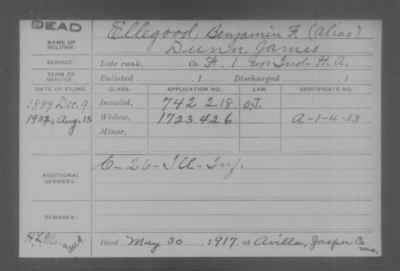 DEAD
NAME OF SOLDIER: Ellegood, Benjamin F. (Alias)
Dunn, James
SERVICE: Late rank, Co. F. 1 Ind. H. A.
TERM OF SERVICE: Enlisted , 1 Discharged , 1
DATE OF FILING. CLASS. APPLICATION NO. LAW. CERTIFICATE NO.
1889 Dec. 9 Invalid, 742 218 O.J.
Aug. 13 Widow, 1723 426 A-1-4-23
Minor,
ADDITIONAL SERVICES: C-26-Ill-Inf.
REMARKS:
Died May 30, 1917, at Avilla, Jasper Co.
Mo.